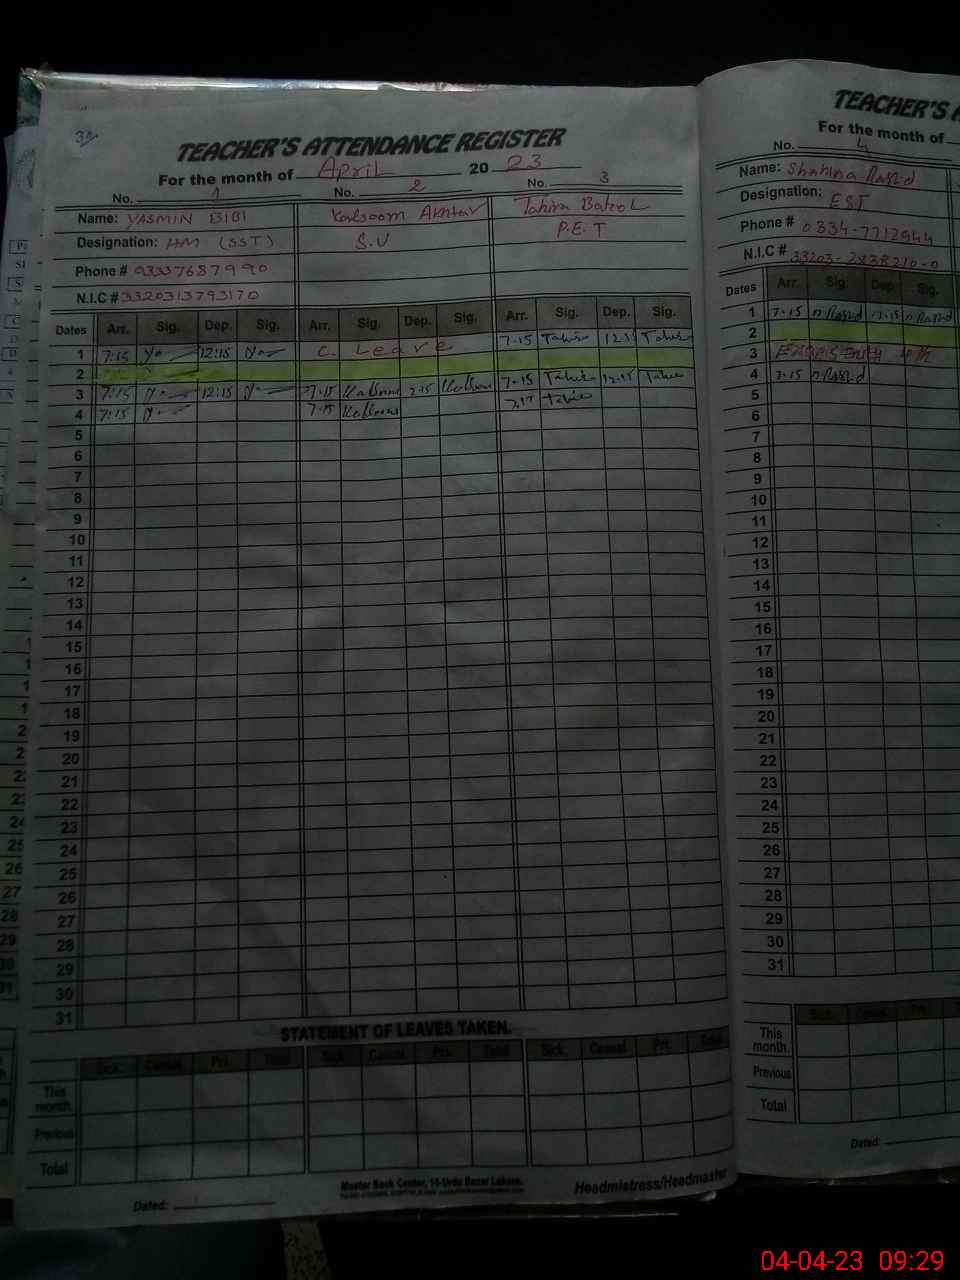 TEACHER'S ATTENDANCE REGISTER
For the month of April 20 23
No. 1 No. 2 No. 3
Name: YASMIN BIBI Kalsoom Akhtar Tahira Batool
Designation: HM (SST) S.V P.E.T
Phone # 03337687990
N.I.C # 3320313793170
Dates Arr. Sig. Dep. Sig. Arr. Sig. Dep. Sig. Arr. Sig. Dep. Sig.
1 7:15 12:15 C. Leave 7-15 Tahira 12:15 Tahira
2
3 7:15 12:15 7.15 Kalsoom 2:15 Kalsoom 7-15 Tahira 12:15 Tahira
4 7:15 7.15 Kalsoom 7:15 Tahira
5
6
7
8
9
10
11
12
13
14
15
16
17
18
19
20
21
22
23
24
25
26
27
28
29
30
31
STATEMENT OF LEAVES TAKEN.
Sick. Casual. Pri. Total Sick. Casual. Pri. Total Sick. Casual. Pri. Total
This month.
Previous
Total
Master Book Center, 16-Urdu Bazar Lahore.
Dated: Headmistress/Headmaster
TEACHER'S A
For the month of
No. 4
Name: Shahina Rashid
Designation: EST
Phone # 0334-7712944
N.I.C #
Dates Arr. Sig. Dep. Sig.
1 7-15 n Rashid 12-15 n Rashid
2
3
4 7-15 n Rashid
5
6
7
8
9
10
11
12
13
14
15
16
17
18
19
20
21
22
23
24
25
26
27
28
29
30
31
Sick. Casual. Pri.
This month.
Previous
Total
Dated:
04-04-23 09:29